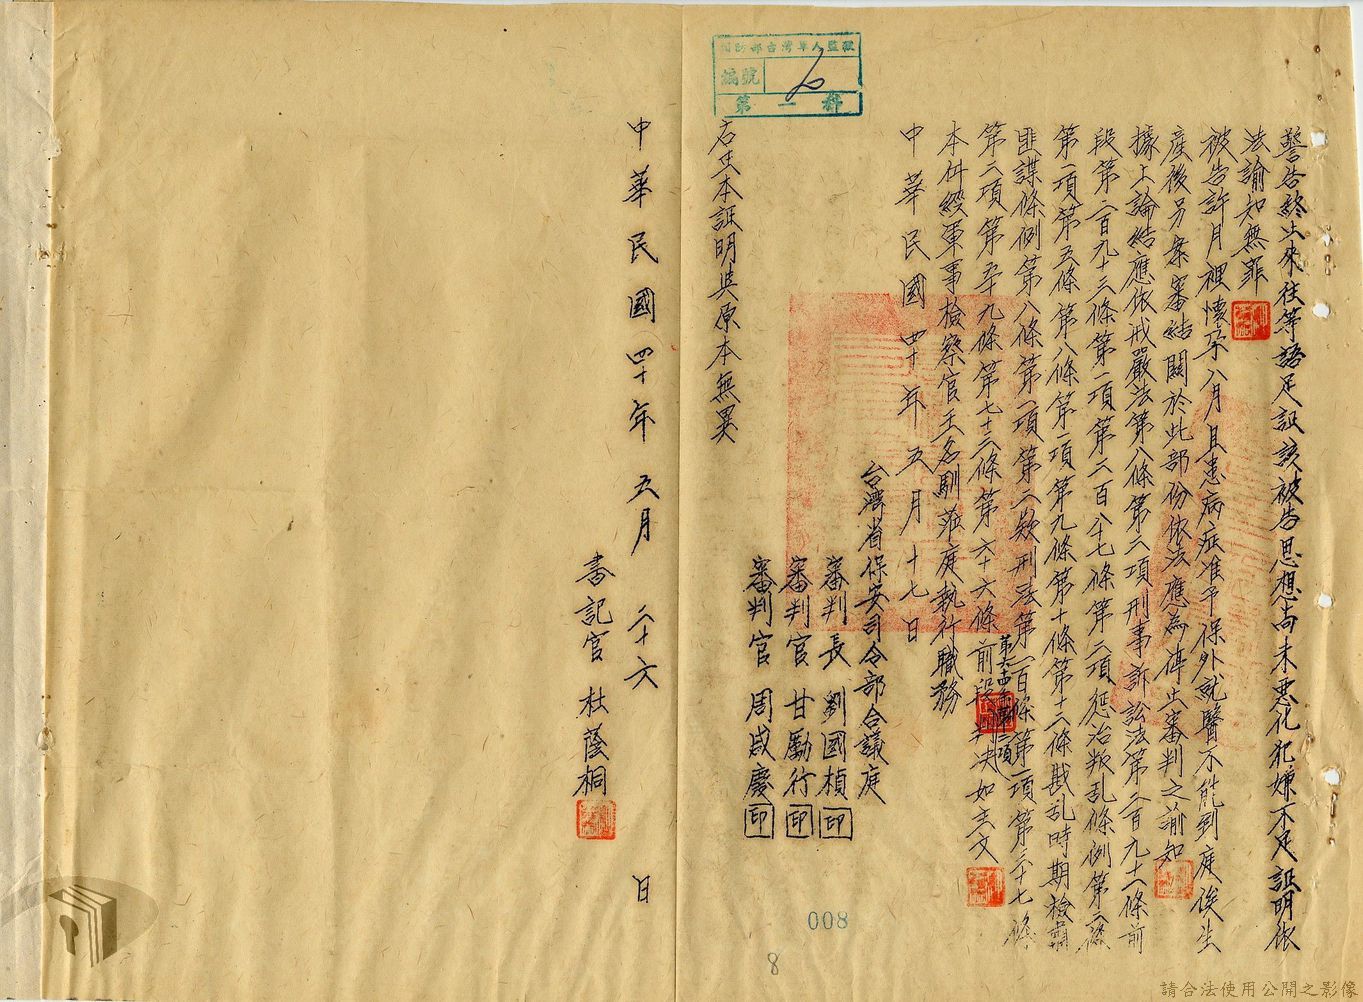 國防部台灣軍人監獄
編號
第一科
警告終止來往等語足証該被告思想尚未惡化犯嫌不足証明依
法諭知無罪
被告許月裡懷孕八月且患病症准予保外就醫不能到庭俟生
產後另案審結關於此部份依法應為停止審判之諭知
據上論結應依戒嚴法第八條第二項刑事訴訟法第二百九十一條前
段第二百九十三條第一項第二百八十七條第二項懲治叛乱條例第二條
第一項第五條第八條第一項第九條第十條第十二條戡乱時期檢肅
匪諜條例第八條第一項第二款刑法第一百條第一項第三十七條
第二項第五十九條第七十三條第六十六條前段判決如主文
第六十四條第二項
本件經軍事檢察官王名馴蒞庭執行職務
中華民國四十年五月十七日
台灣省保安司令部合議庭
審判長 劉國楨 印
審判官 甘勵行 印
審判官 周咸慶 印
右正本証明與原本無異
中華民國四十年五月二十六日
書記官 杜蔭桐
008
8
請合法使用公開之影像